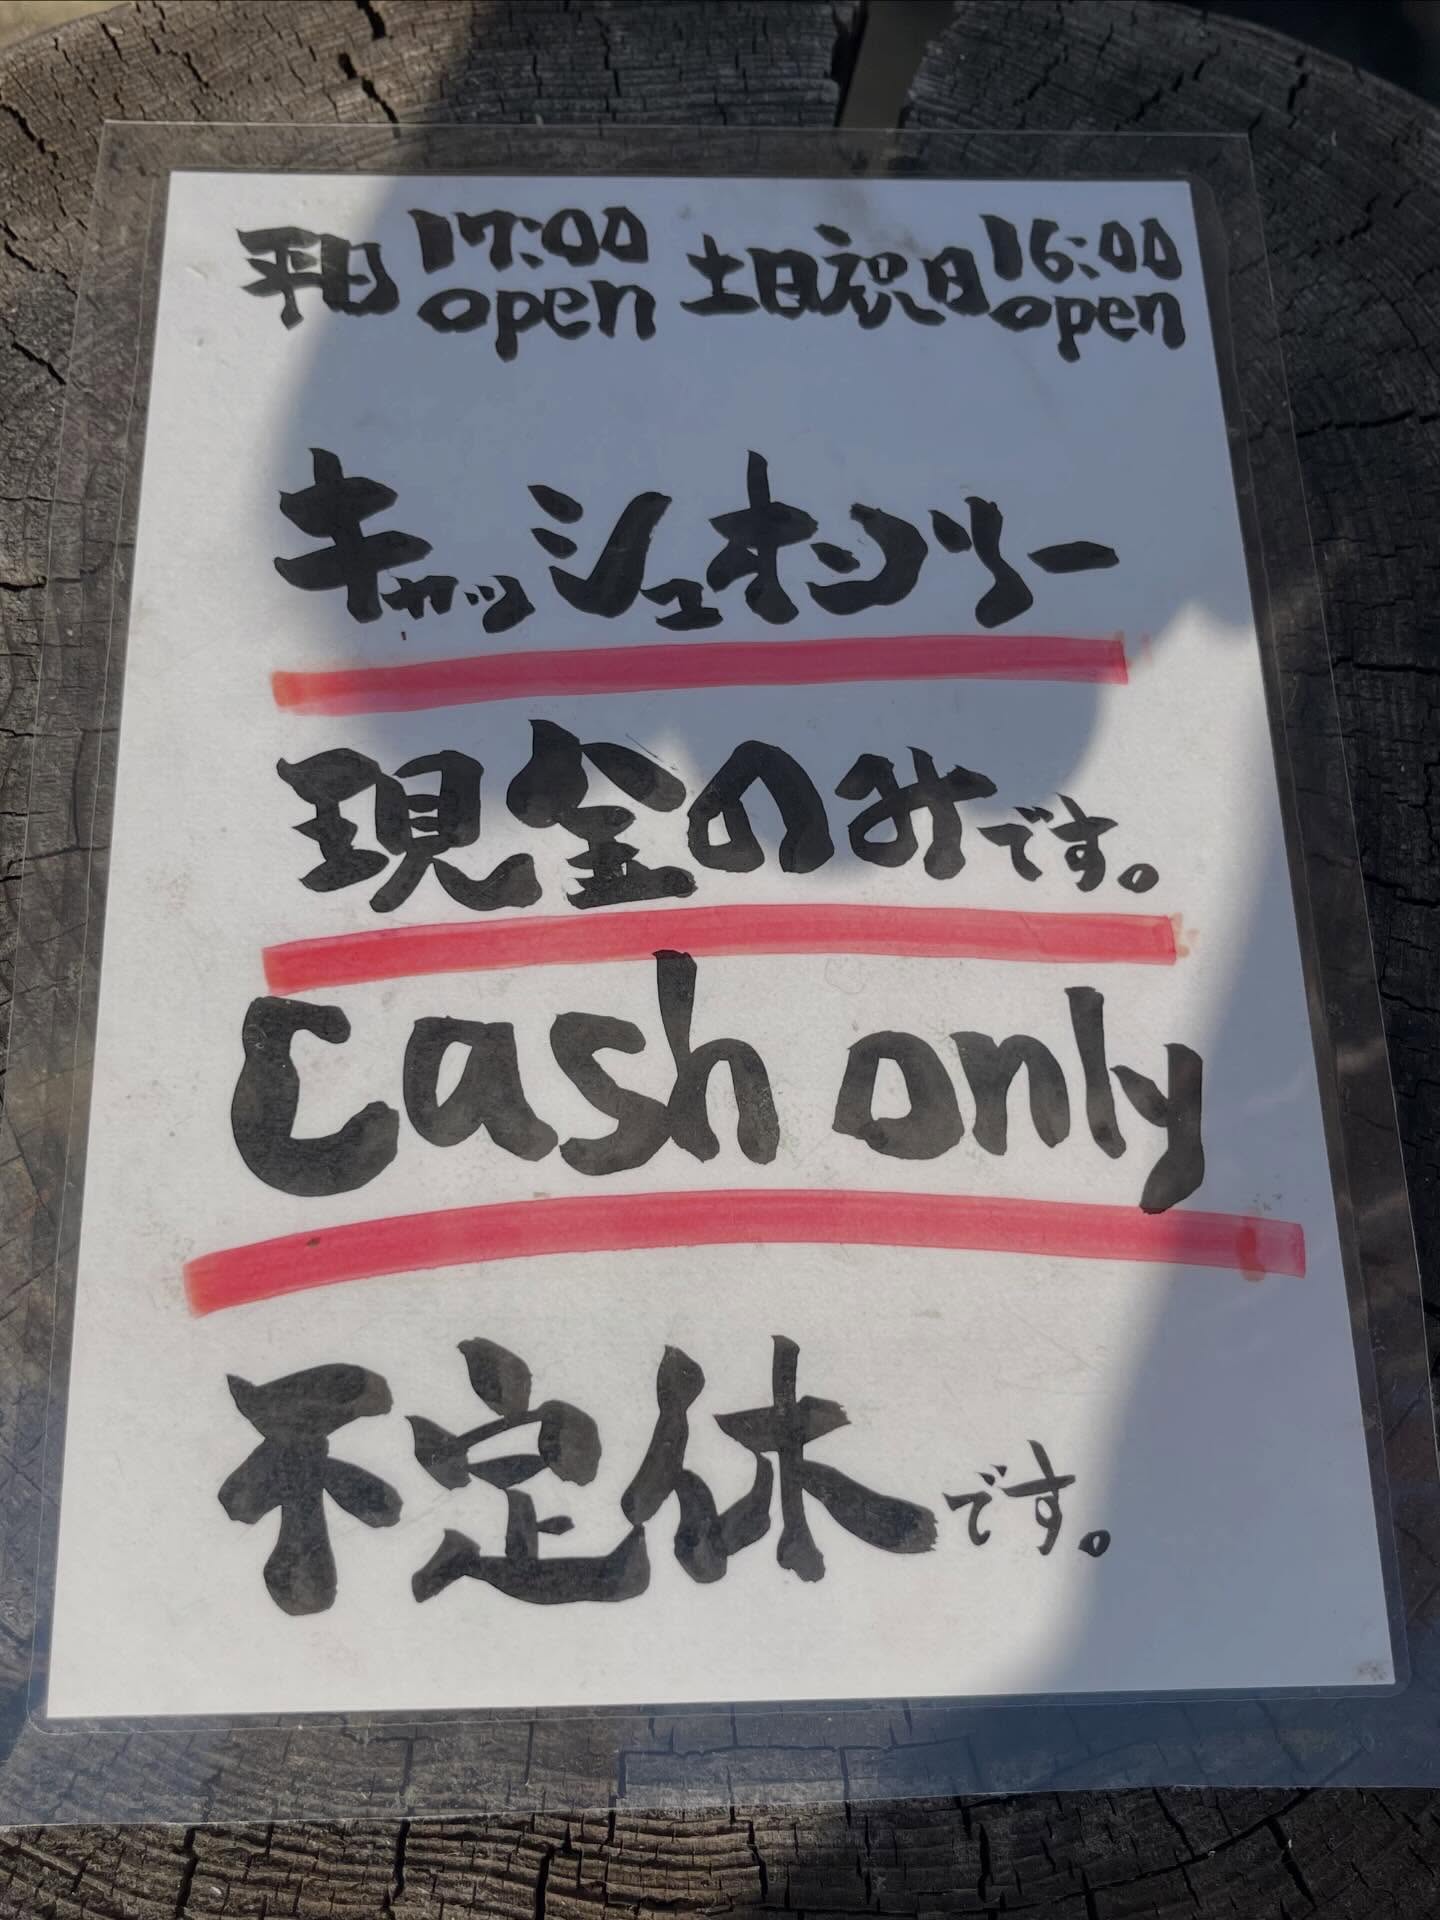 平日 17:00 open 土日祝日 16:00 open
キャッシュオンリー
現金のみです。
Cash only
不定休です。